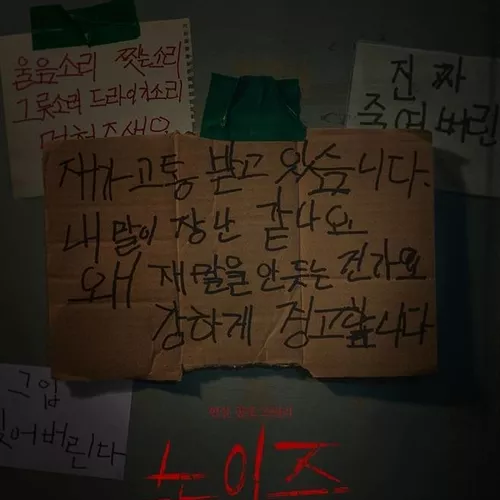 울음소리 짖는소리
그릇소리 드라이기소리
진짜
죽여버린
재가 고통 받고 있습니다.
내 말이 장난 같나요
왜 재 말을 안듣는 건가요
강하게 경고합니다
그입
찢어버린다
노이즈